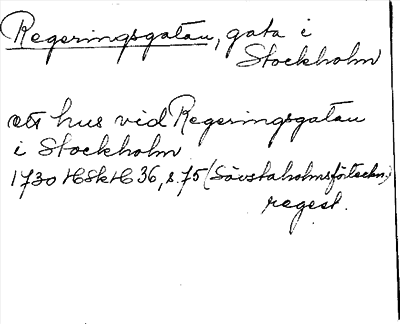 Regeringsgatan, gata i
Stockholm
ett hus vid Regeringsgatan
i Stockholm
1730 HSkH 36, s. 75 (Sävstaholmsförteckn.)
regest.